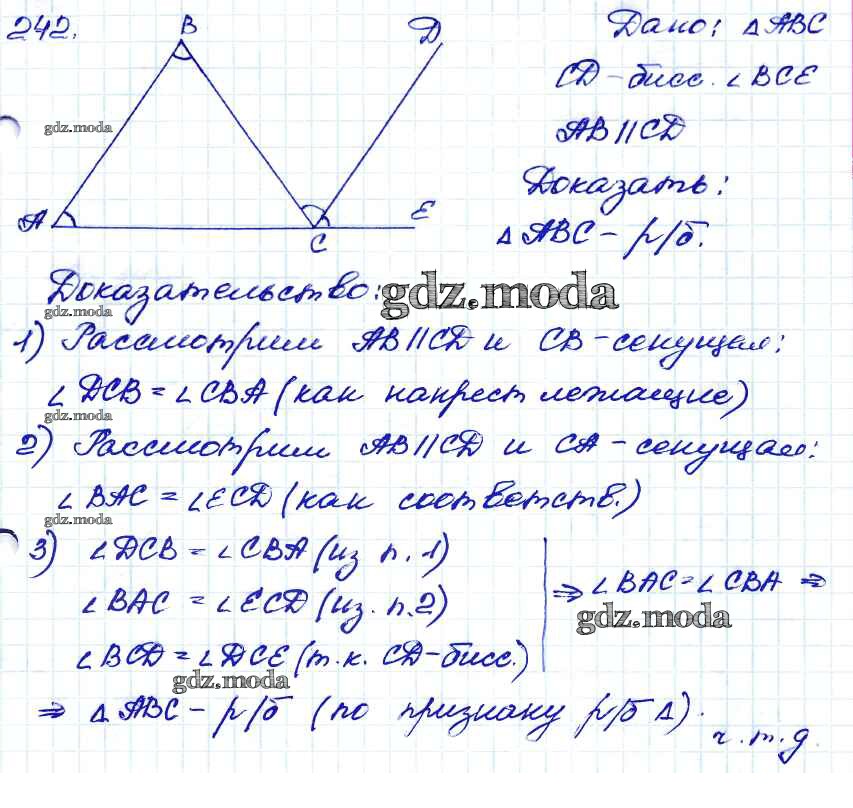 242.
B
D
Дано: △ABC
CD – бисс. ∠BCE
AB ∥ CD
Доказать:
△ABC – р/б.
gdz.moda
A
C
E
Доказательство:
gdz.moda
gdz.moda
1) Рассмотрим AB∥CD и CB – секущая:
∠DCB = ∠CBA (как накрест лежащие)
gdz.moda
2) Рассмотрим AB∥CD и CA – секущая:
∠BAC = ∠ECD (как соответств.)
gdz.moda
3) ∠DCB = ∠CBA (из п.1)
∠BAC = ∠ECD (из. п.2)
∠BCD = ∠DCE (т.к. CD – бисс.)
⇒ ∠BAC = ∠CBA ⇒
gdz.moda
gdz.moda
⇒ △ABC – р/б (по признаку р/б △).
ч.т.д.